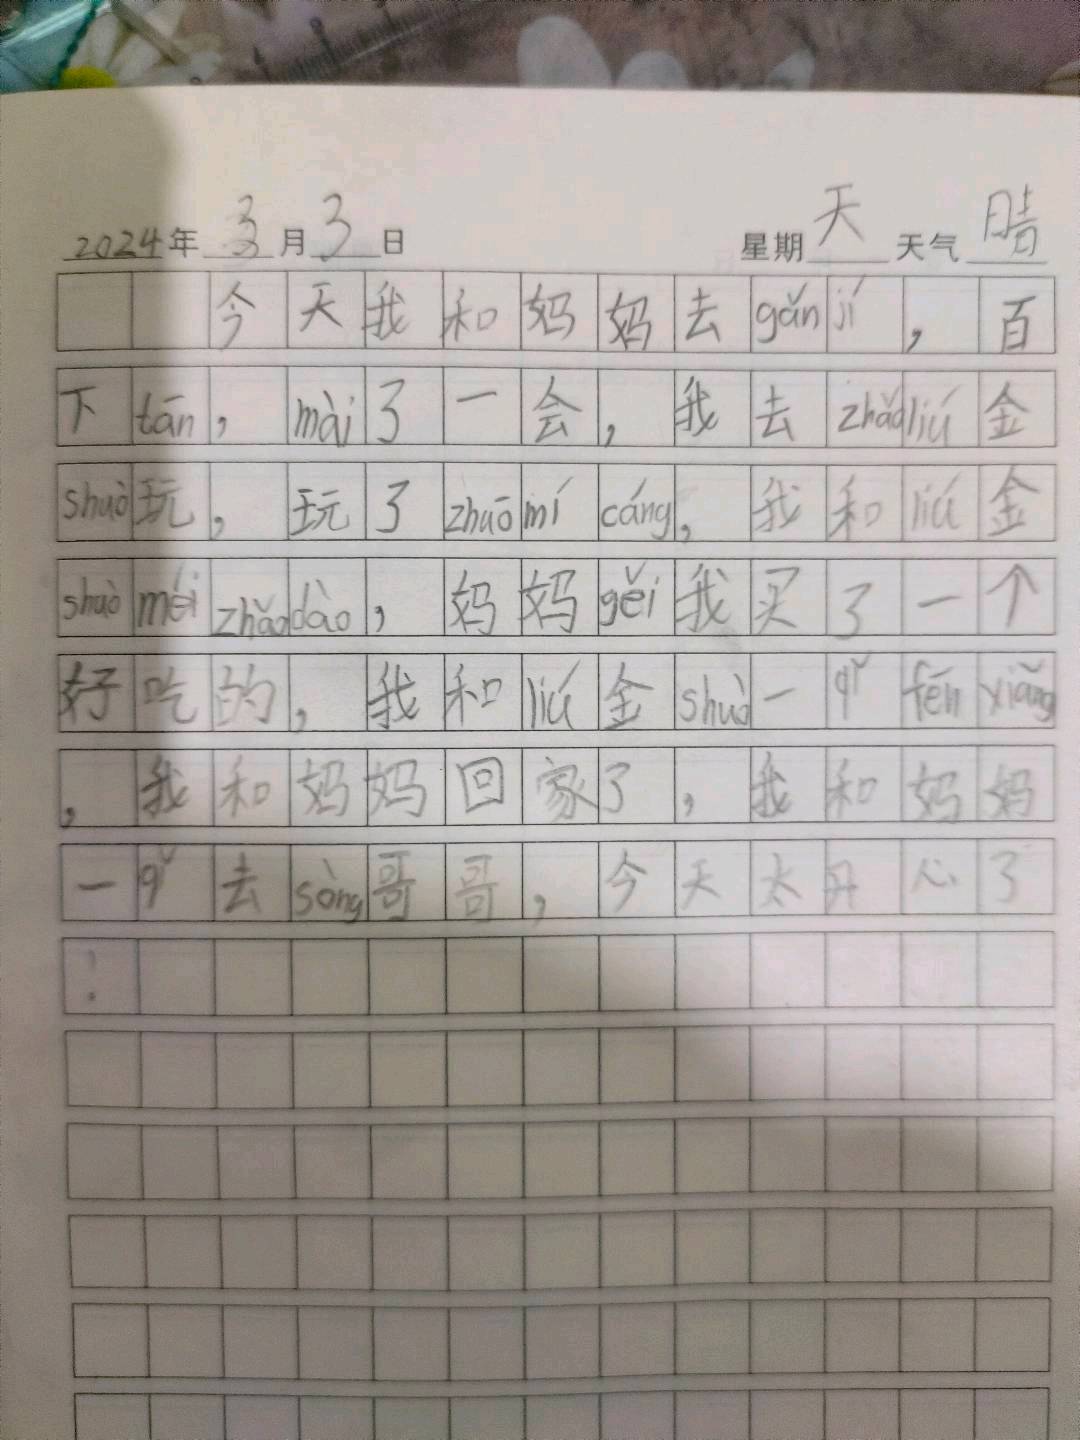 2024年 3月3日 星期天 天气晴
今天我和妈妈去gǎn jí，百
下tān，mài了一会，我去zhǎo liú金
shuò玩，玩了zhuō mí cáng，我和liú金
shuò méi zhǎo dào，妈妈gěi我买了一个
好吃的，我和liú金shuò一qǐ fēn xiǎng
，我和妈妈回家了，我和妈妈
一qǐ去sòng哥哥，今天太开心了
！